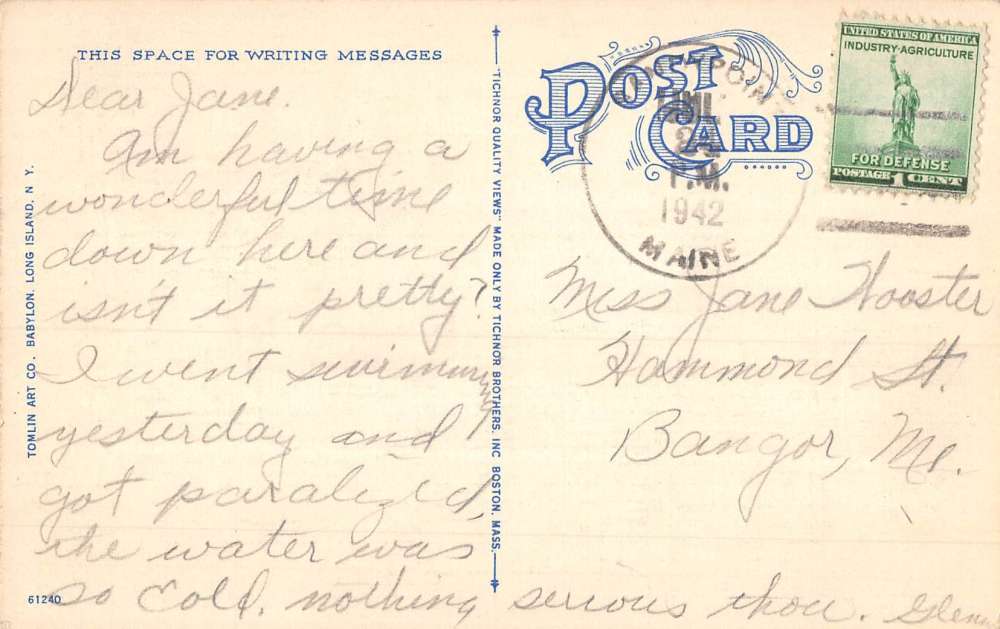 THIS SPACE FOR WRITING MESSAGES
Dear Jane.
Am having a
wonderful time
down here and
isn't it pretty?
I went swimming
yesterday and
got paralized,
the water was
so cold. nothing serious thou. Glenn
TOMLIN ART CO. BABYLON, LONG ISLAND, N. Y.
61240
"TICHNOR QUALITY VIEWS" MADE ONLY BY TICHNOR BROTHERS, INC BOSTON, MASS.
POST
CARD
P.M.
1942
MAINE
UNITED STATES OF AMERICA
INDUSTRY·AGRICULTURE
FOR DEFENSE
POSTAGE 1 CENT
Miss Jane Wooster
Hammond St.
Bangor, Me.